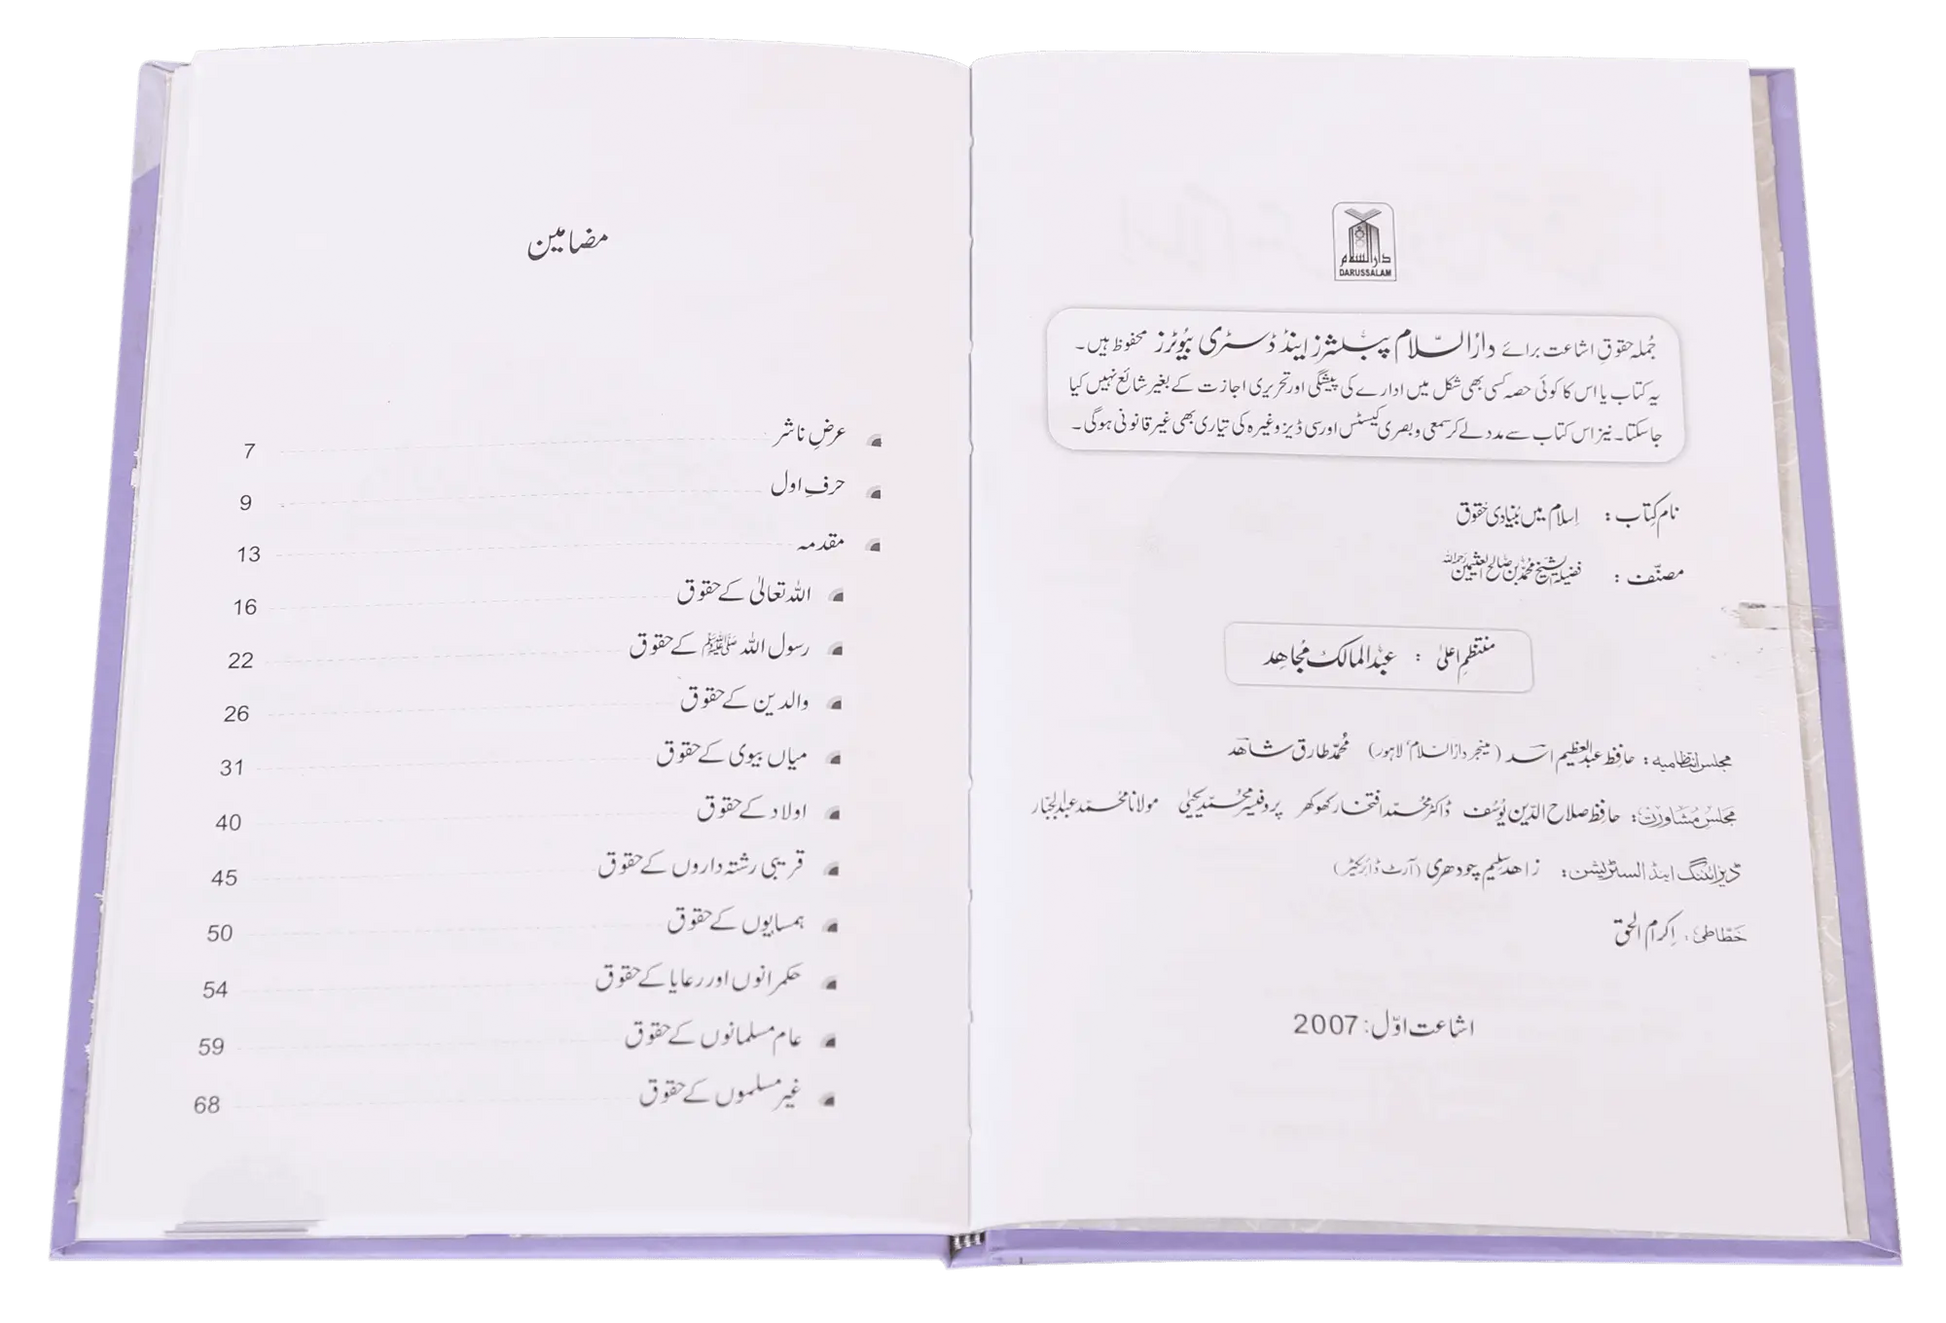 دارالسلام
DARUSSALAM
جُملہ حقوقِ اشاعت برائے دارُالسّلام پبلشرز اینڈ ڈسٹری بیُوٹرز محفوظ ہیں۔
یہ کتاب یا اس کا کوئی حصہ کسی بھی شکل میں ادارے کی پیشگی اور تحریری اجازت کے بغیر شائع نہیں کیا
جا سکتا۔ نیز اس کتاب سے مدد لے کر سمعی و بصری کیسٹس اور سی ڈیز وغیرہ کی تیاری بھی غیر قانونی ہوگی۔
نام کِتاب : اِسلام میں بُنیادی حُقوق
مصنّف : فضیلۃ الشیخ محمّد بن صالح العثیمین رحمہ اللہ
منتظمِ اعلیٰ : عبدالمالک مُجاہِد
مجلس انتظامیہ : حافظ عبدالعظیم اسد (مینجر دارُالسلام، لاہور) محُمّد طارق شاہد
مجلسِ مشاورت : حافظ صلاح الدّین یُوسُف ڈاکٹر محُمّد افتخار کھوکھر پروفیسر محُمّد یحییٰ مولانا محُمّد عبدالجبّار
ڈیزائننگ اینڈ السٹریشن : زاہد سلیم چودھری (آرٹ ڈائریکٹر)
خطّاطی : اِکرامُ الحق
اشاعت اوّل : 2007
مضامین
عرضِ ناشر 7
حرفِ اول 9
مقدمہ 13
اللہ تعالیٰ کے حقوق 16
رسول اللہ ﷺ کے حقوق 22
والدین کے حقوق 26
میاں بیوی کے حقوق 31
اولاد کے حقوق 40
قریبی رشتہ داروں کے حقوق 45
ہمسایوں کے حقوق 50
حکمرانوں اور رعایا کے حقوق 54
عام مسلمانوں کے حقوق 59
غیر مسلموں کے حقوق 68